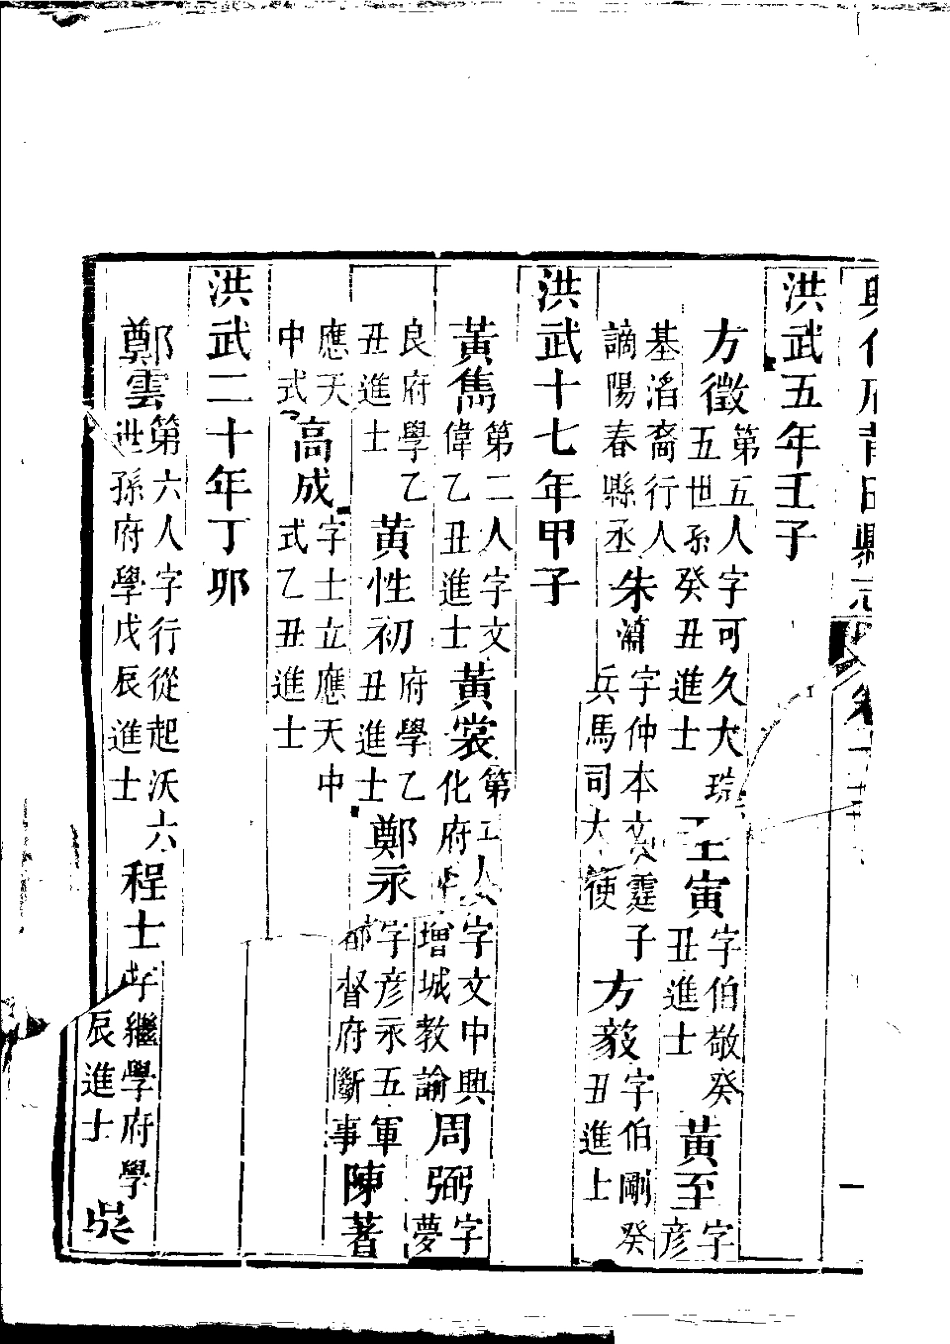 興化府莆田縣志 卷十 一
洪武五年壬子
方徵第五人字可久大琮五世孫癸丑進士王寅字伯敬癸丑進士黃至字彥
基滔裔行人謫陽春縣丞朱瀟字仲本文霆子兵馬司大使方毅字伯剛癸丑進士
洪武十七年甲子
黃雋第二人字文偉乙丑進士黃裳第五人字文中興化府學增城教諭周弼字夢
良府學乙丑進士黃性初府學乙丑進士鄭永字彥永五軍都督府斷事陳著
應天中式高成字士立應天中式乙丑進士
洪武二十年丁卯
鄭雲第六人字行從起沃六世孫府學戊辰進士程士字繼學府學辰進士吳